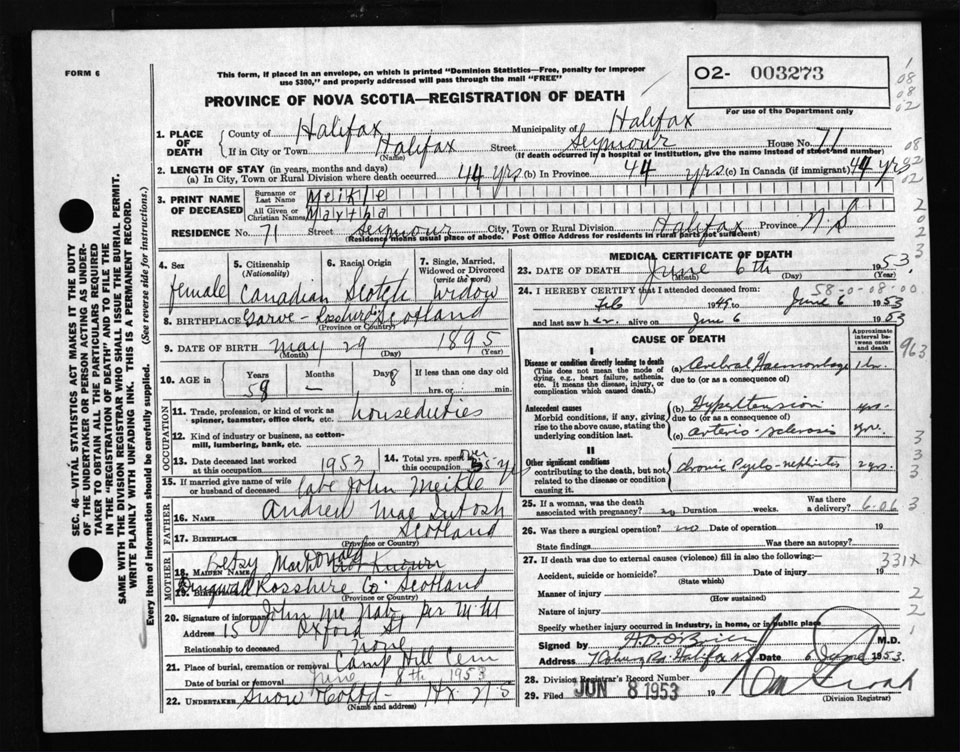 FORM 6
This form, if placed in an envelope, on which is printed "Dominion Statistics—Free, penalty for improper
use $300," and properly addressed will pass through the mail "FREE"
O2- 003273
For use of the Department only
PROVINCE OF NOVA SCOTIA—REGISTRATION OF DEATH
1. PLACE OF DEATH County of Halifax Municipality of Halifax
If in City or Town Halifax Street Seymour House No. 71
(Name) (If death occurred in a hospital or institution, give the name instead of street and number)
2. LENGTH OF STAY (in years, months and days)
(a) In City, Town or Rural Division where death occurred 44 yrs (b) In Province 44 yrs (c) In Canada (if immigrant) 44 yrs
3. PRINT NAME OF DECEASED
Surname or Last Name Meikle
All Given or Christian Names Martha
RESIDENCE No. 71 Street Seymour City, Town or Rural Division Halifax Province N.S
(Residence means usual place of abode. Post Office Address for residents in rural parts not sufficient)
4. Sex female
5. Citizenship (Nationality) Canadian
6. Racial Origin Scotch
7. Single, Married, Widowed or Divorced (write the word) Widow
8. BIRTHPLACE Garve - Rosshire Scotland
(Province or Country)
9. DATE OF BIRTH May 29 1895
(Month) (Day) (Year)
10. AGE in Years 58 Months — Days 8 If less than one day old hrs. or min.
OCCUPATION
11. Trade, profession, or kind of work as spinner, teamster, office clerk, etc. houseduties
12. Kind of industry or business, as cotton-mill, lumbering, bank, etc.
13. Date deceased last worked at this occupation 1953
14. Total yrs. spent in this occupation over 35 yrs
15. If married give name of wife or husband of deceased Late John Meikle
FATHER
16. NAME Andrew MacIntosh
17. BIRTHPLACE Scotland
(Province or Country)
MOTHER
18. MAIDEN NAME Betsy MacDonald
19. BIRTHPLACE Dingwall Rosshire Co Scotland
(Province or Country)
20. Signature of informant John Mc Nab per M M
Address 15 Oxford St
Relationship to deceased none
21. Place of burial, cremation or removal Camp Hill Cem
Date of burial or removal June 8th 1953
22. UNDERTAKER Snow & Co Ltd - Hx N S
(Name and address)
MEDICAL CERTIFICATE OF DEATH
23. DATE OF DEATH June 6th 1953
(Day) (Year)
24. I HEREBY CERTIFY that I attended deceased from 58-0-08-00
Feb 1949 to June 6 1953
and last saw her alive on June 6 1953
CAUSE OF DEATH
Approximate interval between onset and death
963
I
Disease or condition directly leading to death
(This does not mean the mode of dying, e.g., heart failure, asthenia, etc. It means the disease, injury, or complication which caused death.)
(a) Cerebral Haemorrhage 1 hr.
due to (or as a consequence of)
Antecedent causes
Morbid conditions, if any, giving rise to the above cause, stating the underlying condition last.
(b) Hypertension yrs.
due to (or as a consequence of)
(c) arterio-sclerosis yrs.
II
Other significant conditions
contributing to the death, but not related to the disease or condition causing it.
Chronic Pyelo-nephritis 2 yrs.
25. If a woman, was the death associated with pregnancy? no Duration weeks. Was there a delivery? 6-06
26. Was there a surgical operation? no Date of operation 19
State findings Was there an autopsy?
27. If death was due to external causes (violence) fill in also the following: 331x
Accident, suicide or homicide? Date of injury 19
(State which)
Manner of injury
(How sustained)
Nature of injury
Specify whether injury occurred in industry, in home, or in public place
Signed by H.D. O'Brien M.D.
Address Halifax N.S Date 6 June 1953.
28. Division Registrar's Record Number
29. Filed JUN 8 1953 19
(Division Registrar)
SEC. 46—VITAL STATISTICS ACT MAKES IT THE DUTY
OF THE UNDERTAKER OR PERSON ACTING AS UNDER-
TAKER TO OBTAIN ALL THE PARTICULARS REQUIRED
IN THE "REGISTRATION OF DEATH" AND TO FILE THE
SAME WITH THE DIVISION REGISTRAR WHO SHALL ISSUE THE BURIAL PERMIT.
WRITE PLAINLY WITH UNFADING INK. THIS IS A PERMANENT RECORD.
Every item of information should be carefully supplied. (See reverse side for instructions.)